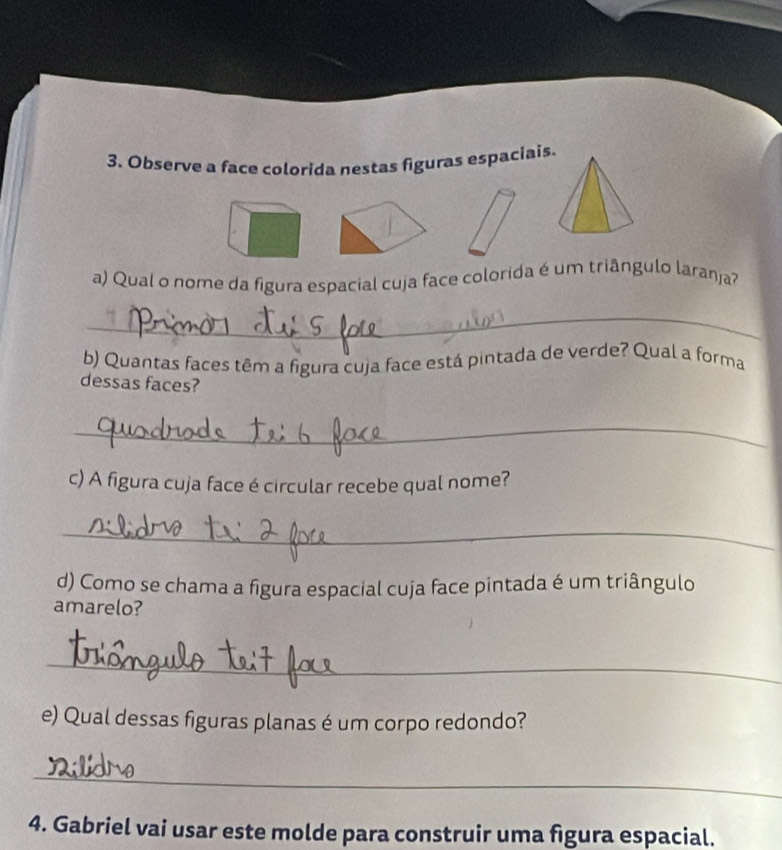 3. Observe a face colorida nestas figuras espaciais.
a) Qual o nome da figura espacial cuja face colorida é um triângulo laranja?
Primor tei 5 face
b) Quantas faces têm a figura cuja face está pintada de verde? Qual a forma
dessas faces?
quadrado tei 6 face
c) A figura cuja face é circular recebe qual nome?
silidro tei 2 face
d) Como se chama a figura espacial cuja face pintada é um triângulo
amarelo?
triângulo tei 7 face
e) Qual dessas figuras planas é um corpo redondo?
silidro
4. Gabriel vai usar este molde para construir uma figura espacial.